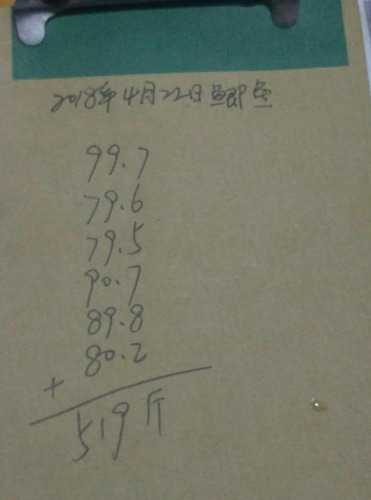 2018年4月22日鲫鱼
99.7
79.6
79.5
90.7
89.8
80.2
+
519斤